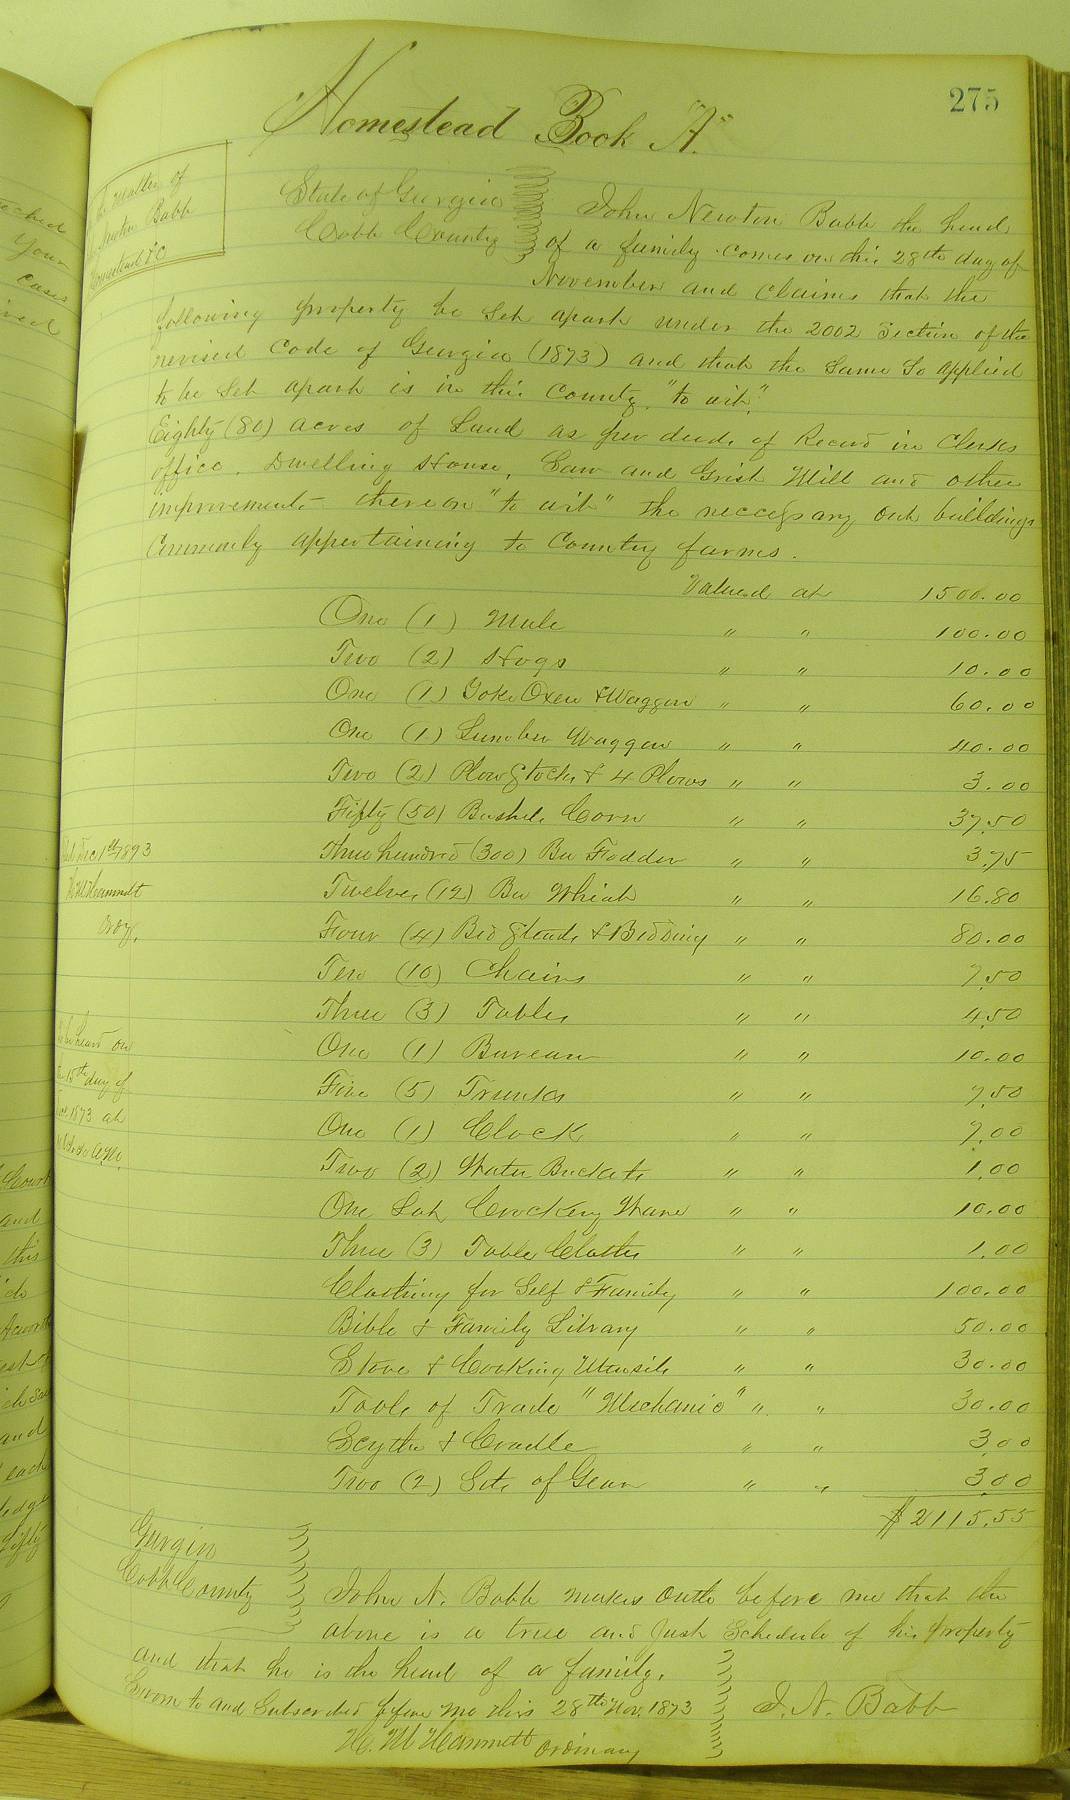 275
Homestead Book "A."
matter of
Newton Babb
Homestead &C
State of Georgia
Cobb County
John Newton Babb the head
of a family comes on this 28th day of
November and claims that the
following property be set apart under the 2002 Section of the
revised Code of Georgia (1873) and that the same so applied
to be set apart is in this County, "to wit,"
Eighty (80) acres of Land as per deeds of Record in Clerks
office. Dwelling House, Saw and Grist Mill and other
improvements thereon "to wit" the neccessary out buildings
Commonly appertaining to Country farms.
Valued at 1500.00
One (1) Mule " " 100.00
Two (2) Hogs " " 10.00
One (1) Yoke Oxen & Waggon " " 60.00
One (1) Lumber Waggon " " 40.00
Two (2) Plow Stocks & 4 Plows " " 3.00
Fifty (50) Bushels Corn " " 37.50
Three hundred (300) Bu Fodder " " 3.75
Twelve (12) Bu Wheat " " 16.80
Four (4) Bed Steads & Bedding " " 80.00
Ten (10) Chairs " " 7.50
Three (3) Tables " " 4.50
One (1) Bureau " " 10.00
Five (5) Trunks " " 7.50
One (1) Clock " " 7.00
Two (2) Water Buckets " " 1.00
One Set Crockery Ware " " 10.00
Three (3) Table Cloths " " 1.00
Clothing for Self & Family " " 100.00
Bible & Family Library " " 50.00
Stove & Cooking Utensils " " 30.00
Tools of Trade "Mechanic" " " 30.00
Scythe & Cradle " " 3.00
Two (2) Sets of Gear " " 3.00
$2115.55
Dec 1st 1873
H. M. Hammett
Ordy.
be heard on
15th day of
1873 at
A.M.
Georgia
Cobb County
John N. Babb makes Oath before me that the
above is a true and Just Schedule of his property
and that he is the head of a family.
Sworn to and Subscribed before me this 28th Nov. 1873
J. N. Babb
H. M. Hammett Ordinary